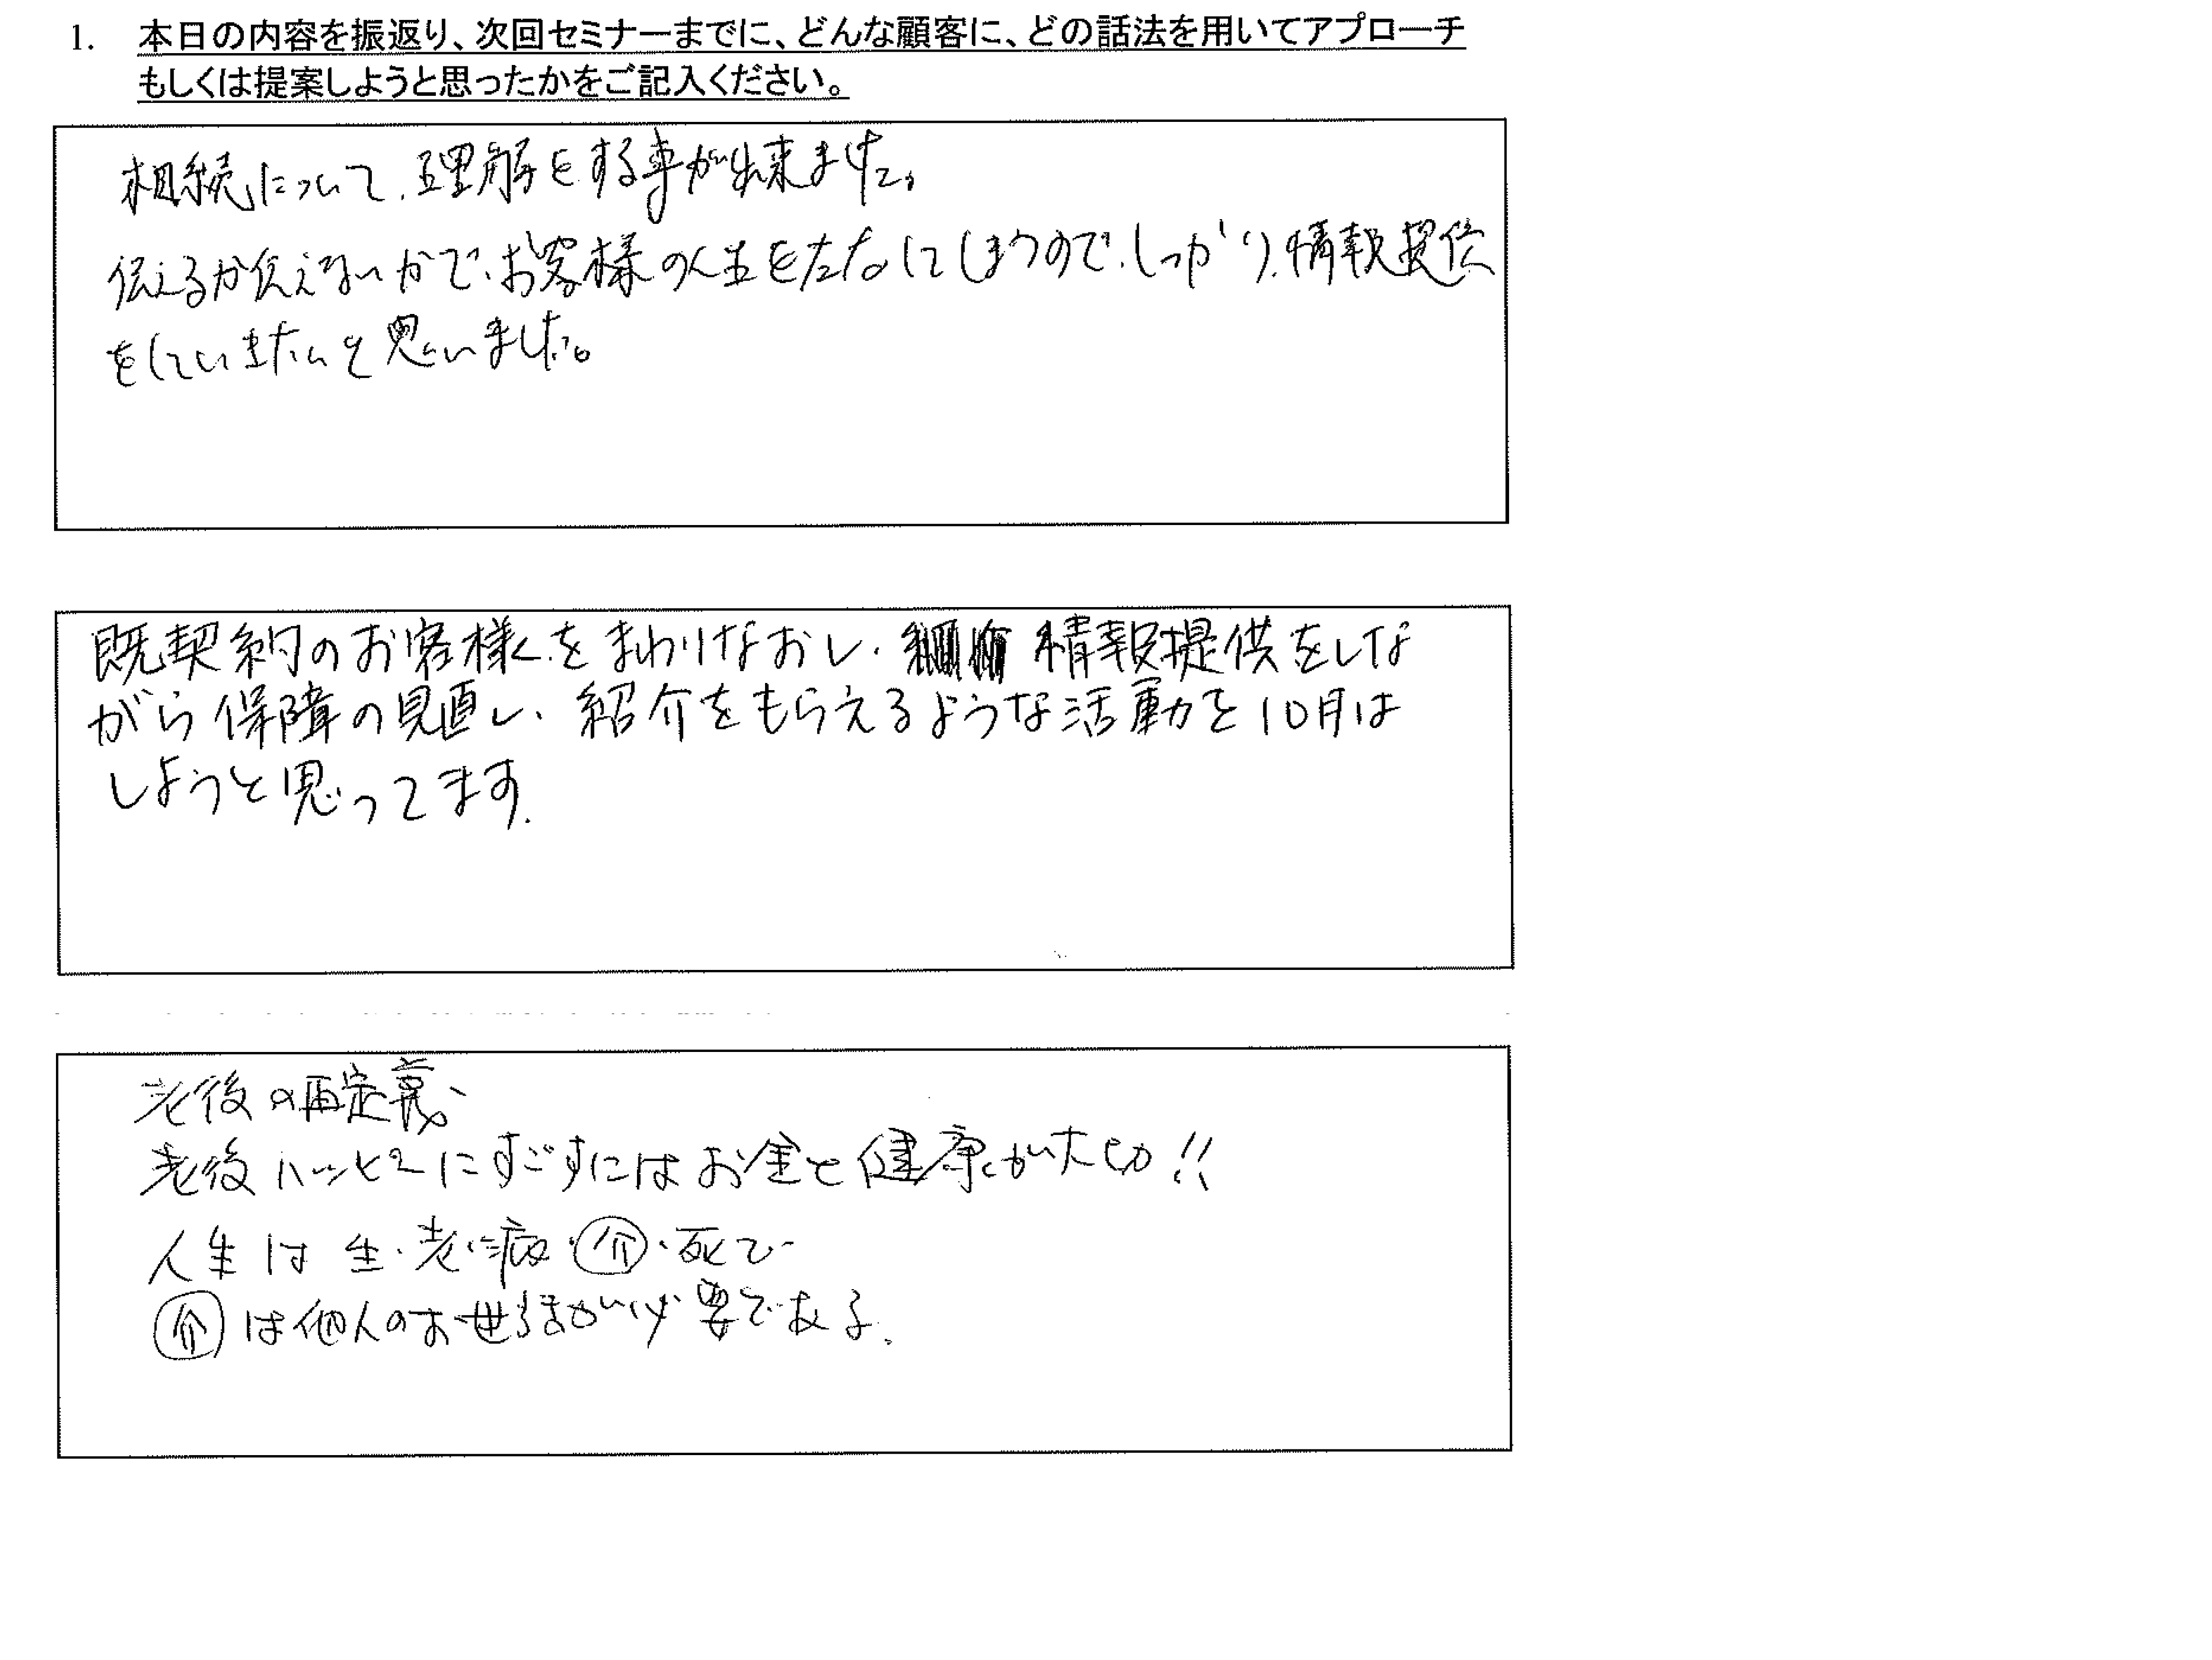 1. 本日の内容を振返り、次回セミナーまでに、どんな顧客に、どの話法を用いてアプローチ
もしくは提案しようと思ったかをご記入ください。
相続について、理解をする事が出来ました。
伝えるか伝えないかで、お客様の人生をしてしまうので、しっかり、情報提供
をしていきたいと思いました。
既契約のお客様をまわりなおし、情報提供をしな
がら保障の見直し、紹介をもらえるような活動を10月は
しようと思ってます.
老後の再定義。
老後ハッピーにすごすにはお金と健康が大切!!
人生は生・老・病・介・死で
介は他人のお世話が必要である.